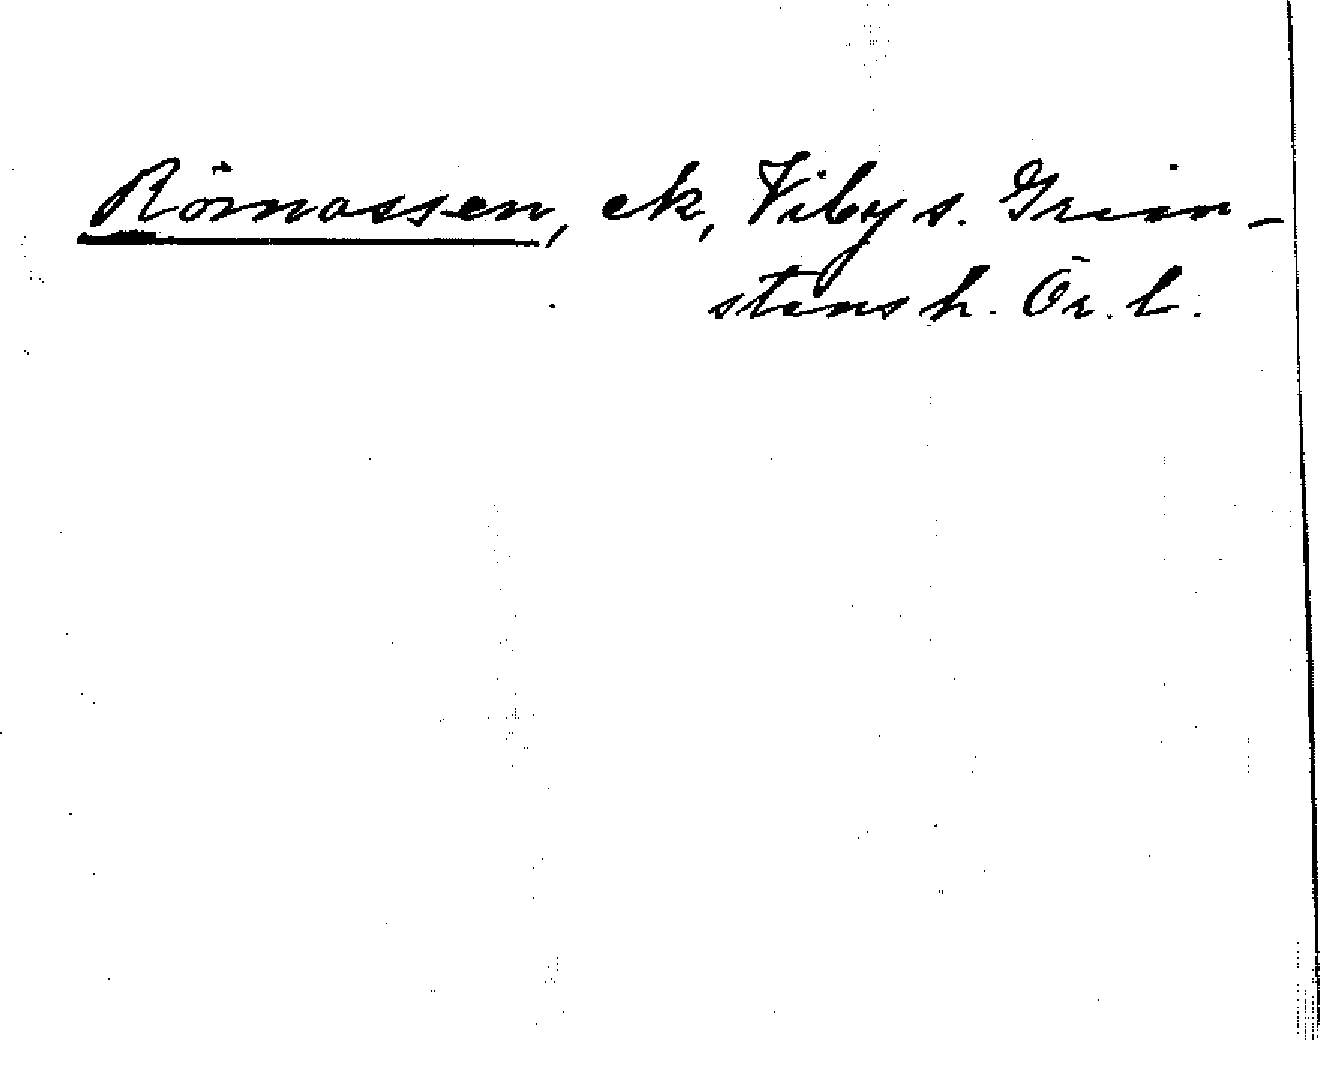 Römossen, ek, Viby s. Grim-
stens h. Ör. l.